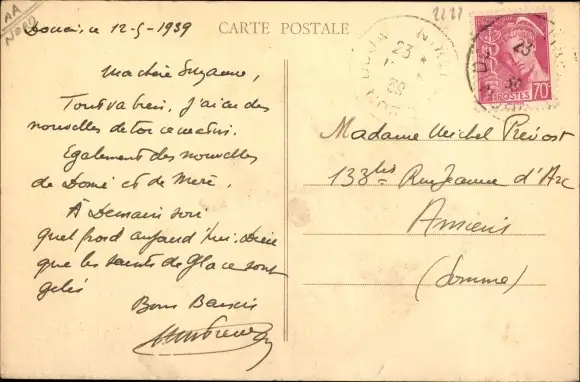 AA
NORD
Douai, ce 12-5-1939
Ma chère Suzanne,
Tout va bien. J'ai eu des
nouvelles de toi ce matin.
Egalement des nouvelles
de Domé et de Mere.
À Demain soir
quel froid aujourd'hui. Dieu
que les saints de Glace sont
gelés
Bons Baisers
CARTE POSTALE
DOUAI
NORD
23
POSTES
70c
Madame Michel Prévost
133bis Rue Jeanne d'Arc
Amiens
(Somme)